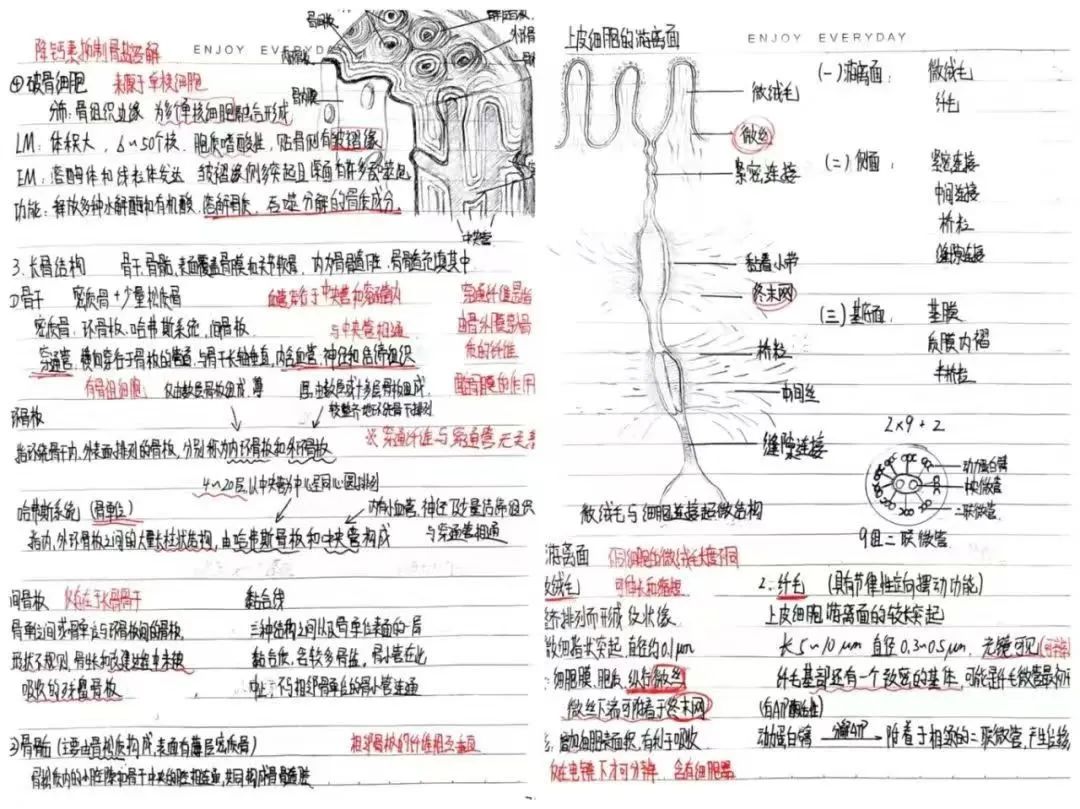 降钙素抑制骨盐溶解
ENJOY EVERYDA
④破骨细胞 来源于单核细胞
分布:骨组织边缘 为多个单核细胞融合形成
LM:体积大,6~50个核,胞质嗜酸性,贴骨侧有皱褶缘
EM:溶酶体和线粒体发达
功能:释放多种水解酶和有机酸,溶解骨质,吞噬分解的骨质成分,
中央管
3.长骨结构 骨干,骨骺,表面覆盖骨膜和关节软骨,内为骨髓腔,骨髓充填其中
①骨干 密质骨+少量松质骨
血管穿行于中央管和穿通管内
与中央管相通
穿通纤维是指
由骨外膜穿入骨
质的纤维
密质骨:环骨板、哈弗斯系统、间骨板
穿通管:横向穿行于骨板的管道,与骨干长轴垂直,内含血管,神经和结缔组织
环骨板
指环绕骨干内,外表面排列的骨板,分别称为内环骨板和外环骨板
※穿通纤维与穿通管无关
4~20层,以中央管为中心呈同心圆排列
哈弗斯系统(骨单位)
内有小血管,神经及少量结缔组织
与穿通管相通
指内,外环骨板之间的大量长柱状结构,由哈弗斯骨板和中央管构成
间骨板 仅存在于长骨骨干
骨单位之间或骨单位与环骨板间的骨板,
形状不规则,骨生长和改建过程中未被
吸收的残留骨板
黏合线
三种结构之间以及骨单位表面的一层
黏合质,含较多骨盐,骨小管在此
中止,不与相邻骨单位的骨小管连通
②骨骺(主要由骨松质构成,表面有薄层密质骨)
相邻骨板的纤维相互垂直
骨松质内的小腔隙和骨干中央的腔相连通,共同构成骨髓腔
上皮细胞的游离面
ENJOY EVERYDAY
微绒毛
微丝
紧密连接
黏着小带
终末网
桥粒
中间丝
缝隙连接
微绒毛与细胞连接超微结构
(一)游离面: 微绒毛
纤毛
(二)侧面: 紧密连接
中间连接
桥粒
缝隙连接
(三)基底面: 基膜
质膜内褶
半桥粒
2×9+2
动力蛋白臂
中央微管
二联微管
9组二联微管
游离面 不同细胞的微绒毛长度不同
微绒毛 可伸长和缩短
整齐排列而形成纹状缘
微细指状突起,直径约0.1μm
细胞膜,胞质,纵行微丝
微丝下端可附着于终末网
增加细胞表面积,有利于吸收
仅在电镜下才可分辨
2.纤毛 (具有节律性定向摆动功能)
上皮细胞游离面的较长突起
长5~10μm 直径0.3~0.5μm,光镜可见(可辨)
纤毛基部还有一个致密的基体,可能是纤毛微管最初
(有ATP酶活性)
动力蛋白臂 分解ATP 附着于相邻的二联微管,产生